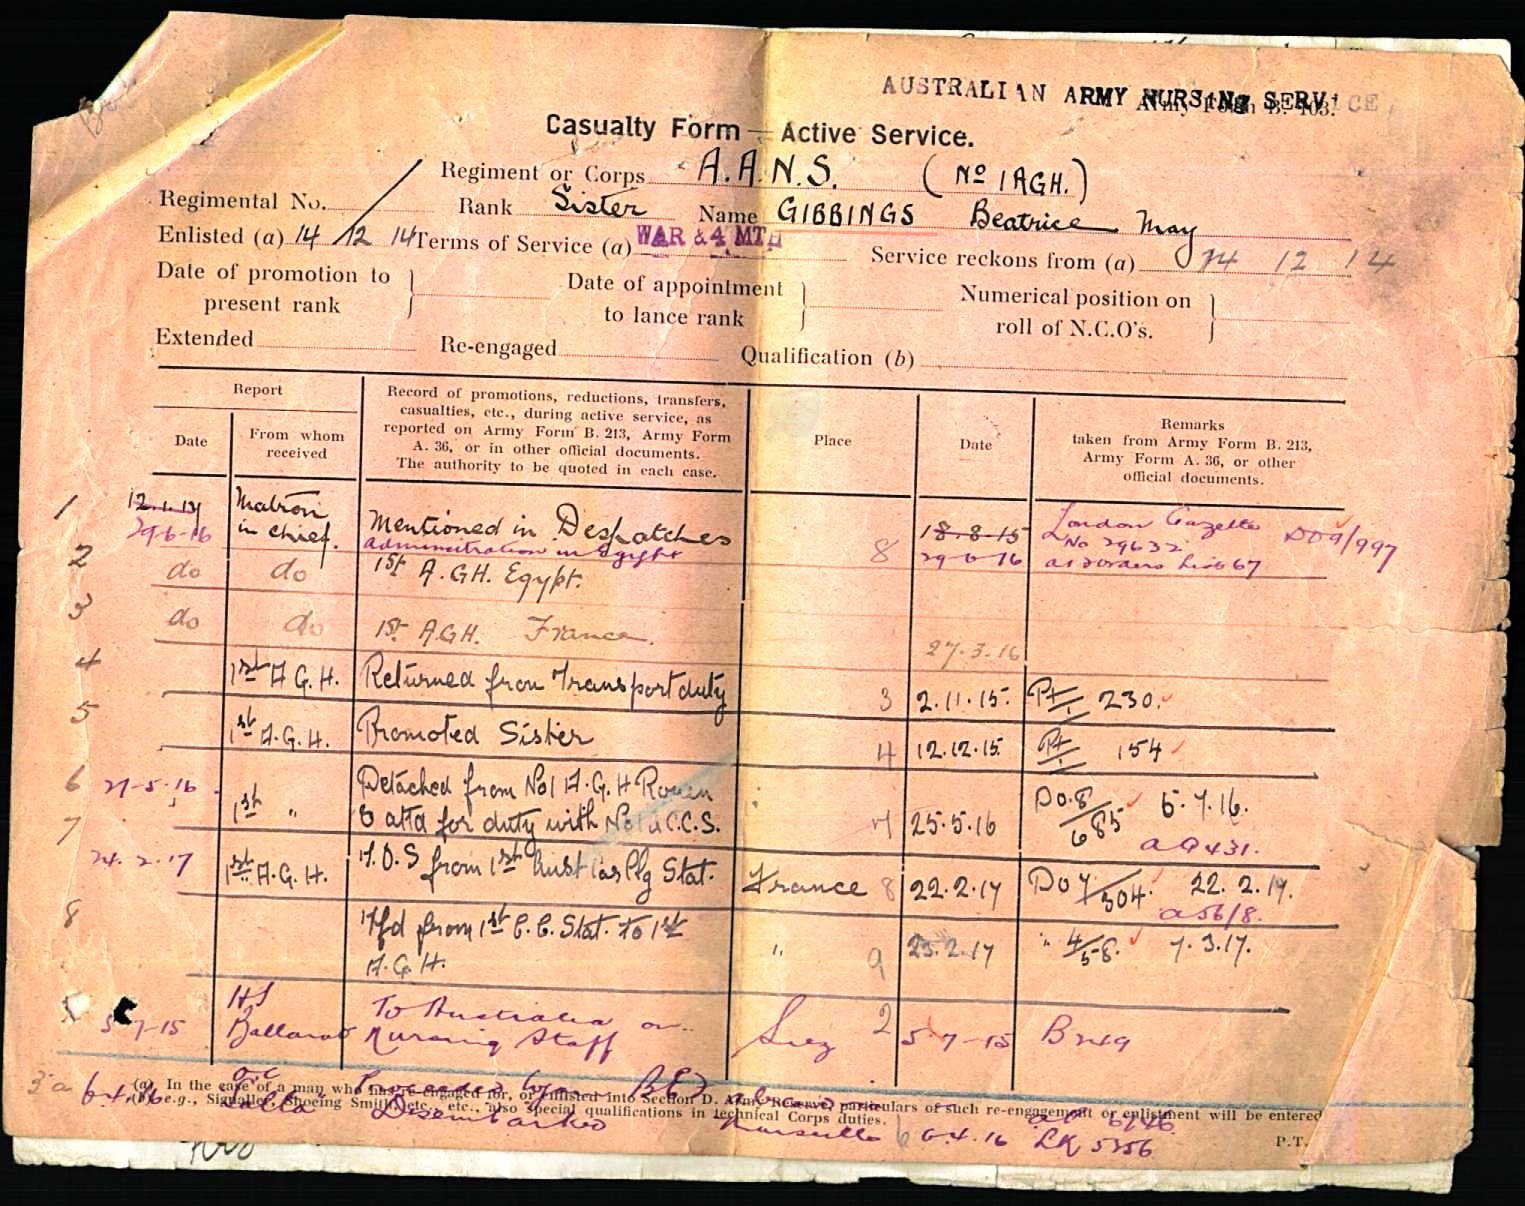 AUSTRALIAN ARMY NURSING SERVICE
Army Form B. 103.
Casualty Form — Active Service.
Regiment or Corps A.A.N.S. (No 1 AGH.)
Regimental No. Rank Sister Name GIBBINGS Beatrice May
Enlisted (a) 14 12 14 Terms of Service (a) WAR & 4 MTH
Service reckons from (a) 14 12 14
Date of promotion to present rank
Date of appointment to lance rank
Numerical position on roll of N.C.O's.
Extended Re-engaged Qualification (b)
Report
Date
From whom received
Record of promotions, reductions, transfers,
casualties, etc., during active service, as
reported on Army Form B. 213, Army Form
A. 36, or in other official documents.
The authority to be quoted in each case.
Place
Date
Remarks
taken from Army Form B. 213,
Army Form A. 36, or other
official documents.
1 Matron Mentioned in Despatches 18-8-15 London Gazette
29-6-16 in chief. administration in Egypt 8 29-6-16 No 29632
2 do do 1st A.GH. Egypt.
3 do do 1st A.GH. France. 27.3.16
4 1st A.G.H. Returned from Transport duty 3 2.11.15. Pt 1 230.
5 1st A.G.H. Promoted Sister 4 12.12.15. Pt 1 154
6 27-5-16 1st " Detached from No1 A.G.H Rouen
7 & attd for duty with No1 A.C.C.S. 7 25.5.16 Do.8/685 5.7.16.
a a 431.
24.2.17 1st A.G.H. T.O.S from 1st Aust Cas Clg Stat. France 8 22.2.17 Do 7/304 22.2.17.
a 56/8.
8 Tfd from 1st C.C. Stat. to 1st " 9 23.2.17 " 4/58. 7.3.17.
A.G.H.
HS To Australia on
5-7-15 Ballarat Nursing Staff Suez 2 5-7-15 B 249
(a) In the case of a man who has re-engaged for, or enlisted into Section D. Army Reserve, particulars of such re-engagement or enlistment will be entered
(b) e.g., Signaller, Shoeing Smith, etc., etc., also special qualifications in technical Corps duties.
3a 6.4.16 Proceeded BEF
Disembarked Marseilles 6 6.4.16
P.T.